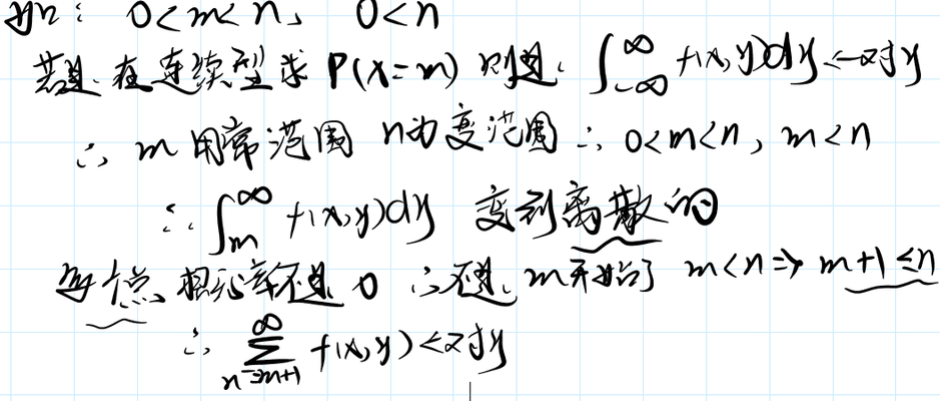 如: 0<m<n, 0<n
若是在连续型求 P(X=m) 则是 ∫_{-∞}^{∞} f(x,y)dy ←对y
∴ m 用常范围 n为变范围 ∴ 0<m<n, m<n
∴ ∫_m^{∞} f(x,y)dy 变到离散的
每个点概率不是 0 ∴不是 m开始了 m<n ⇒ m+1≤n
∴ ∑_{n=m+1}^{∞} f(x,y) ←对y